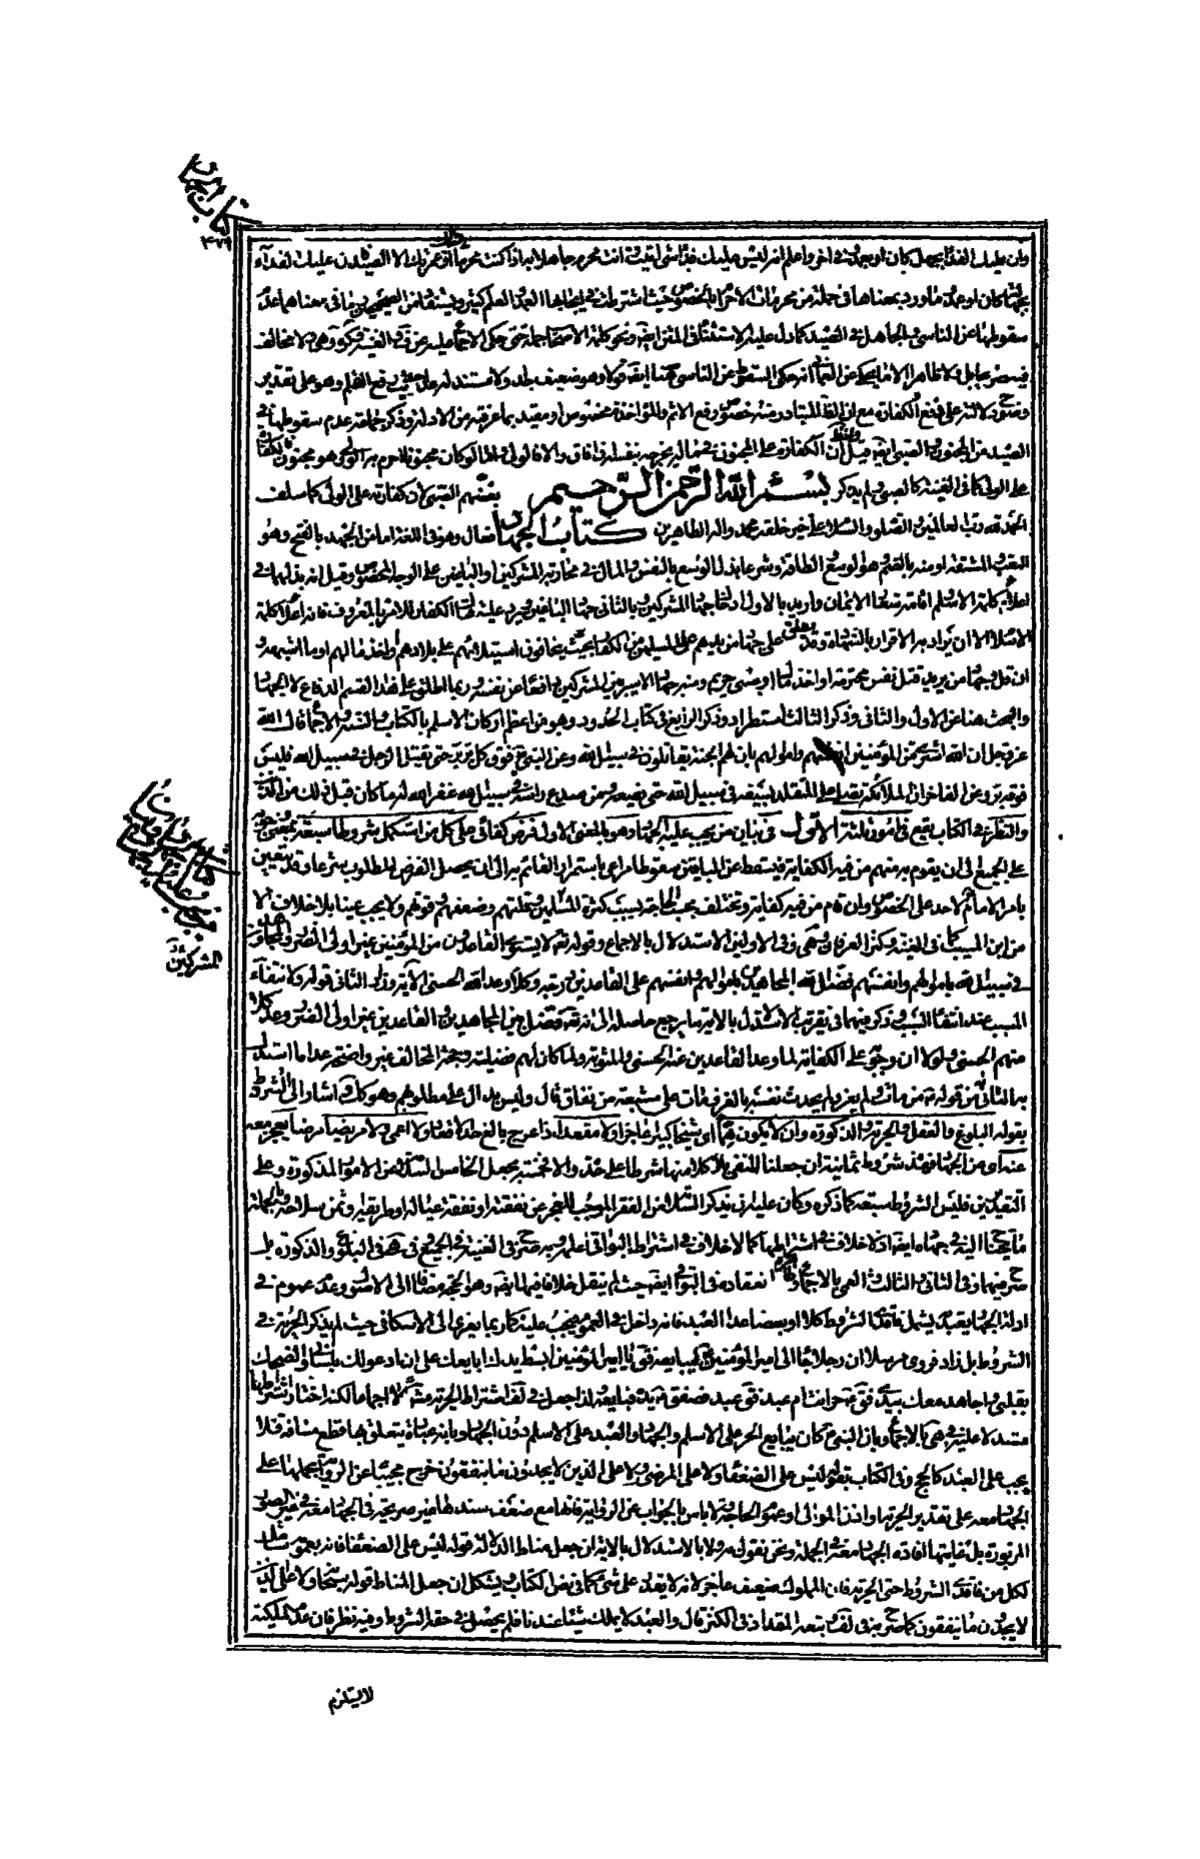 كتاب الجهاد
٤٧٩
وان عليك الفداء بجهل كان او بعمد وفي اخر واعلم انه ليس عليك فداء شئ اتيته وانت محرم جاهلا به اذا كنت محرما في حجك الا الصيد فان عليك الفداء
بجهالة كان او عمد وما ورد بمعناها في جملة من محرمات الاحرام بالخصوص حيث اشترطت في ايجابها العمد والعلم كثير ويستفاد من الصحيحين وما في معناهما عدم
سقوطها عن الناسي والجاهل في الصيد كما دل عليه الاستثناء في المتن ايضا ونحو كلمة الاصحاب جملة حتى حكى الاجماع عليه عن ف والغنية وكره وهي ولا مخالف
فيه صريحا بل ولا ظاهرا الا ما يحكى عن العماني انه حكى السقوط عن الناسي هنا ايضا قولا وهو ضعيف جدا ولا مستند له عدا حديث رفع القلم وهو على تقدير
وضوح دلالته على رفع الكفارة مع ان المتبادر منه خصوص رفع الاثم والمؤاخذة مخصوص او مقيد بما عرفته من الادلة وذكر جماعة عدم سقوطها في
الصيد عن المجنون والصبي ايضا قيل لان الكفارة على المجنون في ماله يخرجه بنفسه ان افاق والا فالولي واما لو كان مجنونا احرم به الولي وهو مجنون فالكفارة
على الولي كما في الغنية كالصبي ولم يذكر بسم الله الرحمن الرحيم بعضهم الصبي لان كفارته على الولي كما سلف
الحمد لله رب العالمين والصلوة والسلام على خير خلقه محمد واله الطاهرين كتاب الجهاد فعال وهو في اللغة اما من الجهد بالفتح وهو
التعب والمشقة او منه بالضم وهو الوسع والطاقة وشرعا بذل الوسع بالنفس والمال في محاربة المشركين او الباغين على الوجه المخصوص وقيل انه بذلهما في
اعلاء كلمة الاسلام واقامة شعائر الايمان واريد بالاول ادخال جهاد المشركين وبالثاني جهاد الباغين ويرد عليه قتال الكفار للامر بالمعروف فانه اعلاء كلمة
الاسلام الا ان يراد به الاقرار بالشهادة وقد يطلق على جهاد من يدهم على المسلمين من الكفار بحيث يخافون استيلائهم على بلادهم واخذ مالهم او ما اشبهه و
ان قل وجهاد من يريد قتل نفس محترمة او اخذ مال او سبي حريم ومنه جهاد الاسير بين المشركين دافعا عن نفسه وربما اطلق على هذا القسم الدفاع لا الجهاد
والبحث هنا عن الاول والثاني وذكر الثالث استطراد وذكر الرابع في كتاب الحدود وهو من اعظم اركان الاسلام بالكتاب والسنة والاجماع قال الله
عز وجل ان الله اشترى من المؤمنين انفسهم واموالهم بان لهم الجنة يقاتلون في سبيل الله وعن النبي ص فوق كل بر بر حتى يقتل الرجل في سبيل الله فليس
والنظر في الكتاب يقع في امور ثلثة الاول في بيان من يجب عليه الجهاد وهو بالمعنى الاول فرض كفائي على كل من استكمل شروطا سبعة
على الجميع الى ان يقوم به منهم من فيه الكفاية فيسقط عن الباقين سقوطا مراعى باستمرار القائم به الى ان يحصل الغرض المطلوب به شرعا وقد يتعين
بامر الامام لاحد على الخصوص وان قام من فيه كفاية وتختلف بحسب الحاجة بسبب كثرة المشركين وقلتهم وضعفهم وقوتهم ولا يجب عينا بلا خلاف الا
من ابن المسيب كما في الغنية وكنز العرفان وهي وفي الاولين الاستدلال بالاجماع وقوله تعالى لا يستوي القاعدون من المؤمنين غير اولي الضرر والمجاهدون
في سبيل الله باموالهم وانفسهم فضل الله المجاهدين باموالهم وانفسهم على القاعدين درجة وكلا وعد الله الحسنى الاية وزاد الثاني قوله ولانتفاء
المسبب عند انتفاء السبب وذكر فيهما في تقريب الاستدلال بالاية ما يرجع حاصله الى انه تعالى فضل بين المجاهدين والقاعدين غير اولي الضرر وعد كلا
منهم الحسنى ولولا ان وجوبه على الكفاية لما وعد القاعدين عنه الحسنى والمثوبة ولما كان لهم فضيلة وحجة المخالف غير واضحة عدا ما استدل
به الثاني من قوله ص من مات ولم يغز ولم يحدث نفسه بالغزو مات على شعبة من نفاق قال وليس بدال على مطلوبهم وهو كك واشار الى الشروط
بقوله البلوغ والعقل والحرية والذكورة وان لا يكون هما اي شيخا كبيرا عاجزا ولا مقعدا اي ذا عرج بالغ حد الاقعاد ولا اعمى ولا مريضا مرضا يعجز معه
عنه اي عن الجهاد فهذه شروط ثمانية ان جعلنا المنفي بلا كلا منها شرطا على حدة والا فخمسة بجعل الخامس السلامة من الامور المذكورة وعلى
التقديرين فليس الشروط سبعة كما ذكره وكان عليه ان يذكر السلامة من الفقر الموجب للعجز عن نفقته او نفقة عياله او طريقه وثمن سلاحه وبالجملة
ما يحتاج اليه في جهاده ايضا اذ لا خلاف في اشتراطها كما لا خلاف في اشتراط البواقي اعلمه وبه صرح في الغنية في الجميع وفي هي في البلوغ والذكورة بل
صرح فيهما وفي الثاني والثالث والعمى بالاجماع انعقاده في البواقي ايضا حيث لم ينقل خلافا فيها ايضا وهو الحجة مضافا الى الاصل وعدم عموم في
ادلة الجهاد يعتد به يشمل فاقد الشروط كلا او بعضا عدا العبد فانه داخل في العموم فيجب عليه كما ربما يعزى الى الاسكافي حيث لم يذكر الحرية في
الشروط بل زاد فروى مرسلا ان رجلا جاء الى امير المؤمنين ع ليبايعه فق يا امير المؤمنين ابسط يدك ابايعك على ان ادعو لك بلساني وانصحك
بقلبي واجاهد معك بيدي فق ع حر انت ام عبد فق عبد فصفق ع يده فبايعه لذا جعل في لف اشتراط الحرية مشهورا لا اجماعا لكنه اختار اشتراطها
معتد لا عليه في هي بالاجماع وبان النبي ص كان يبايع الحر على الاسلام والجهاد والعبد على الاسلام دون الجهاد وبانه عبادة يتعلق بها قطع مسافة فلا
يجب على العبد كالحج وفي الكتاب بقوله ليس على الضعفاء ولا على المرضى ولا على الذين لا يجدون ما ينفقون حرج مجيبا عن الرواية بحملها على
الجهاد معه على تقدير الحرية او اذن المولى او عموم الحاجة ولا باس بالجواب عن الرواية فانها مع ضعف سندها غير صريحة في الجهاد معه في غير الصورة
المزبورة بل غايتها افادة الجهاد معه في الجملة ونحن نقول به ولا بالاستدلال بالاية ان جعل مناط الدلالة قوله ليس على الضعفاء فانه بعمومه شامل
لكل من فاقدي الشروط حتى الحرية فان المملوك ضعيف عاجز لانه لا يقدر على شئ كما في نص الكتاب ويشكل ان جعل المناط قوله سبحانه ولا على الذين
لا يجدون ما ينفقون كما صرح به في لف وتبعه المقداد في الكنز قال والعبد لا يملك شيئا عندنا فلم يحصل في حقه الشرط وفيه نظر فان عدم الملكية
لا يستلزم
المشركين